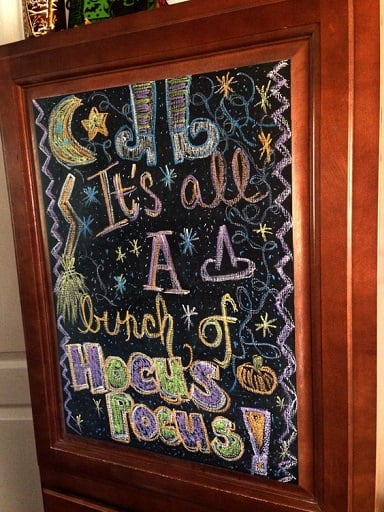 It's all
A
bunch of
Hocus
Pocus!